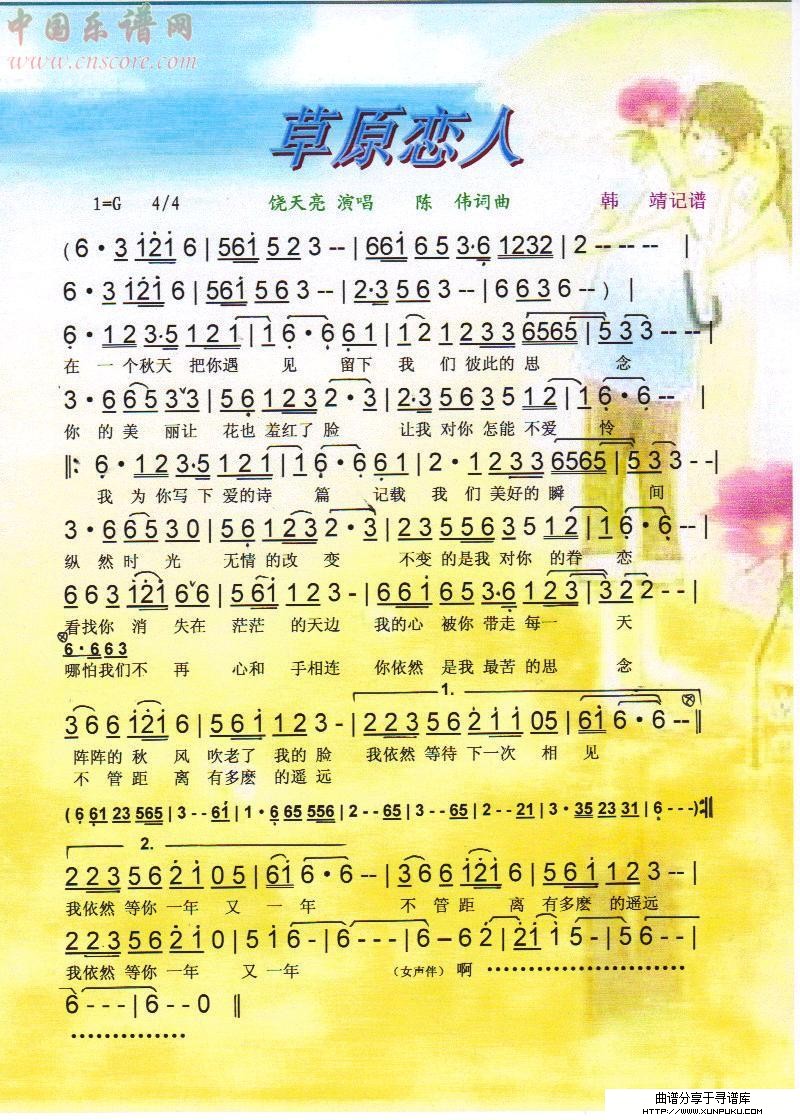 中国乐谱网
www.cnscore.com
草原恋人
1=G 4/4 饶天亮 演唱 陈 伟词曲 韩 靖记谱
(6·3 1216|561523--|661653·61232|2-- -- --|
6·31216|561563--|2·3563--|66636--)|
6·123·5121|16·661|1212336565|533-- --|
在 一 个秋天 把你遇 见 留下 我 们 彼此的 思 念
3·66533|561232·3|2·3563512|16·6-- --|
你 的 美 丽让 花也 羞红了 脸 让我 对你 怎能 不爱 怜
‖:6·123·5121|16·661|2·12336565|533--|
我 为 你写 下 爱的诗 篇 记载 我 们 美好的 瞬 间
3·66530|561232·3|2355563512|16·6--|
纵 然 时 光 无情 的改 变 不变 的是我 对你 的眷 恋
66312166|561123--|661653·6123|322--|
看找你 消 失在 茫茫 的天边 我的心 被你 带走 每一 天
6·663
哪怕我们不 再 心和 手相连 你依然 是我 最苦 的思 念
1.
3661216|561123-|2235621105|616·6--‖
阵阵的 秋 风 吹老了 我的 脸 我依然 等待 下一次 相 见
不 管 距 离 有多麽 的遥远
(66123565|3--61|1·665556|2--65|3--65|2--21|3·352331|6--):‖
2.
223562105|616·6--|3661216|561123--|
我依然 等你 一年 又 一 年 不 管 距 离 有多麽 的遥远
22356210|516-|6---|6-62|2115-|56--|
我依然 等你 一年 又 一年 (女声伴) 啊 ························
6---|6--0‖
··············
曲谱分享于寻谱库
WWW.XUNPUKU.COM